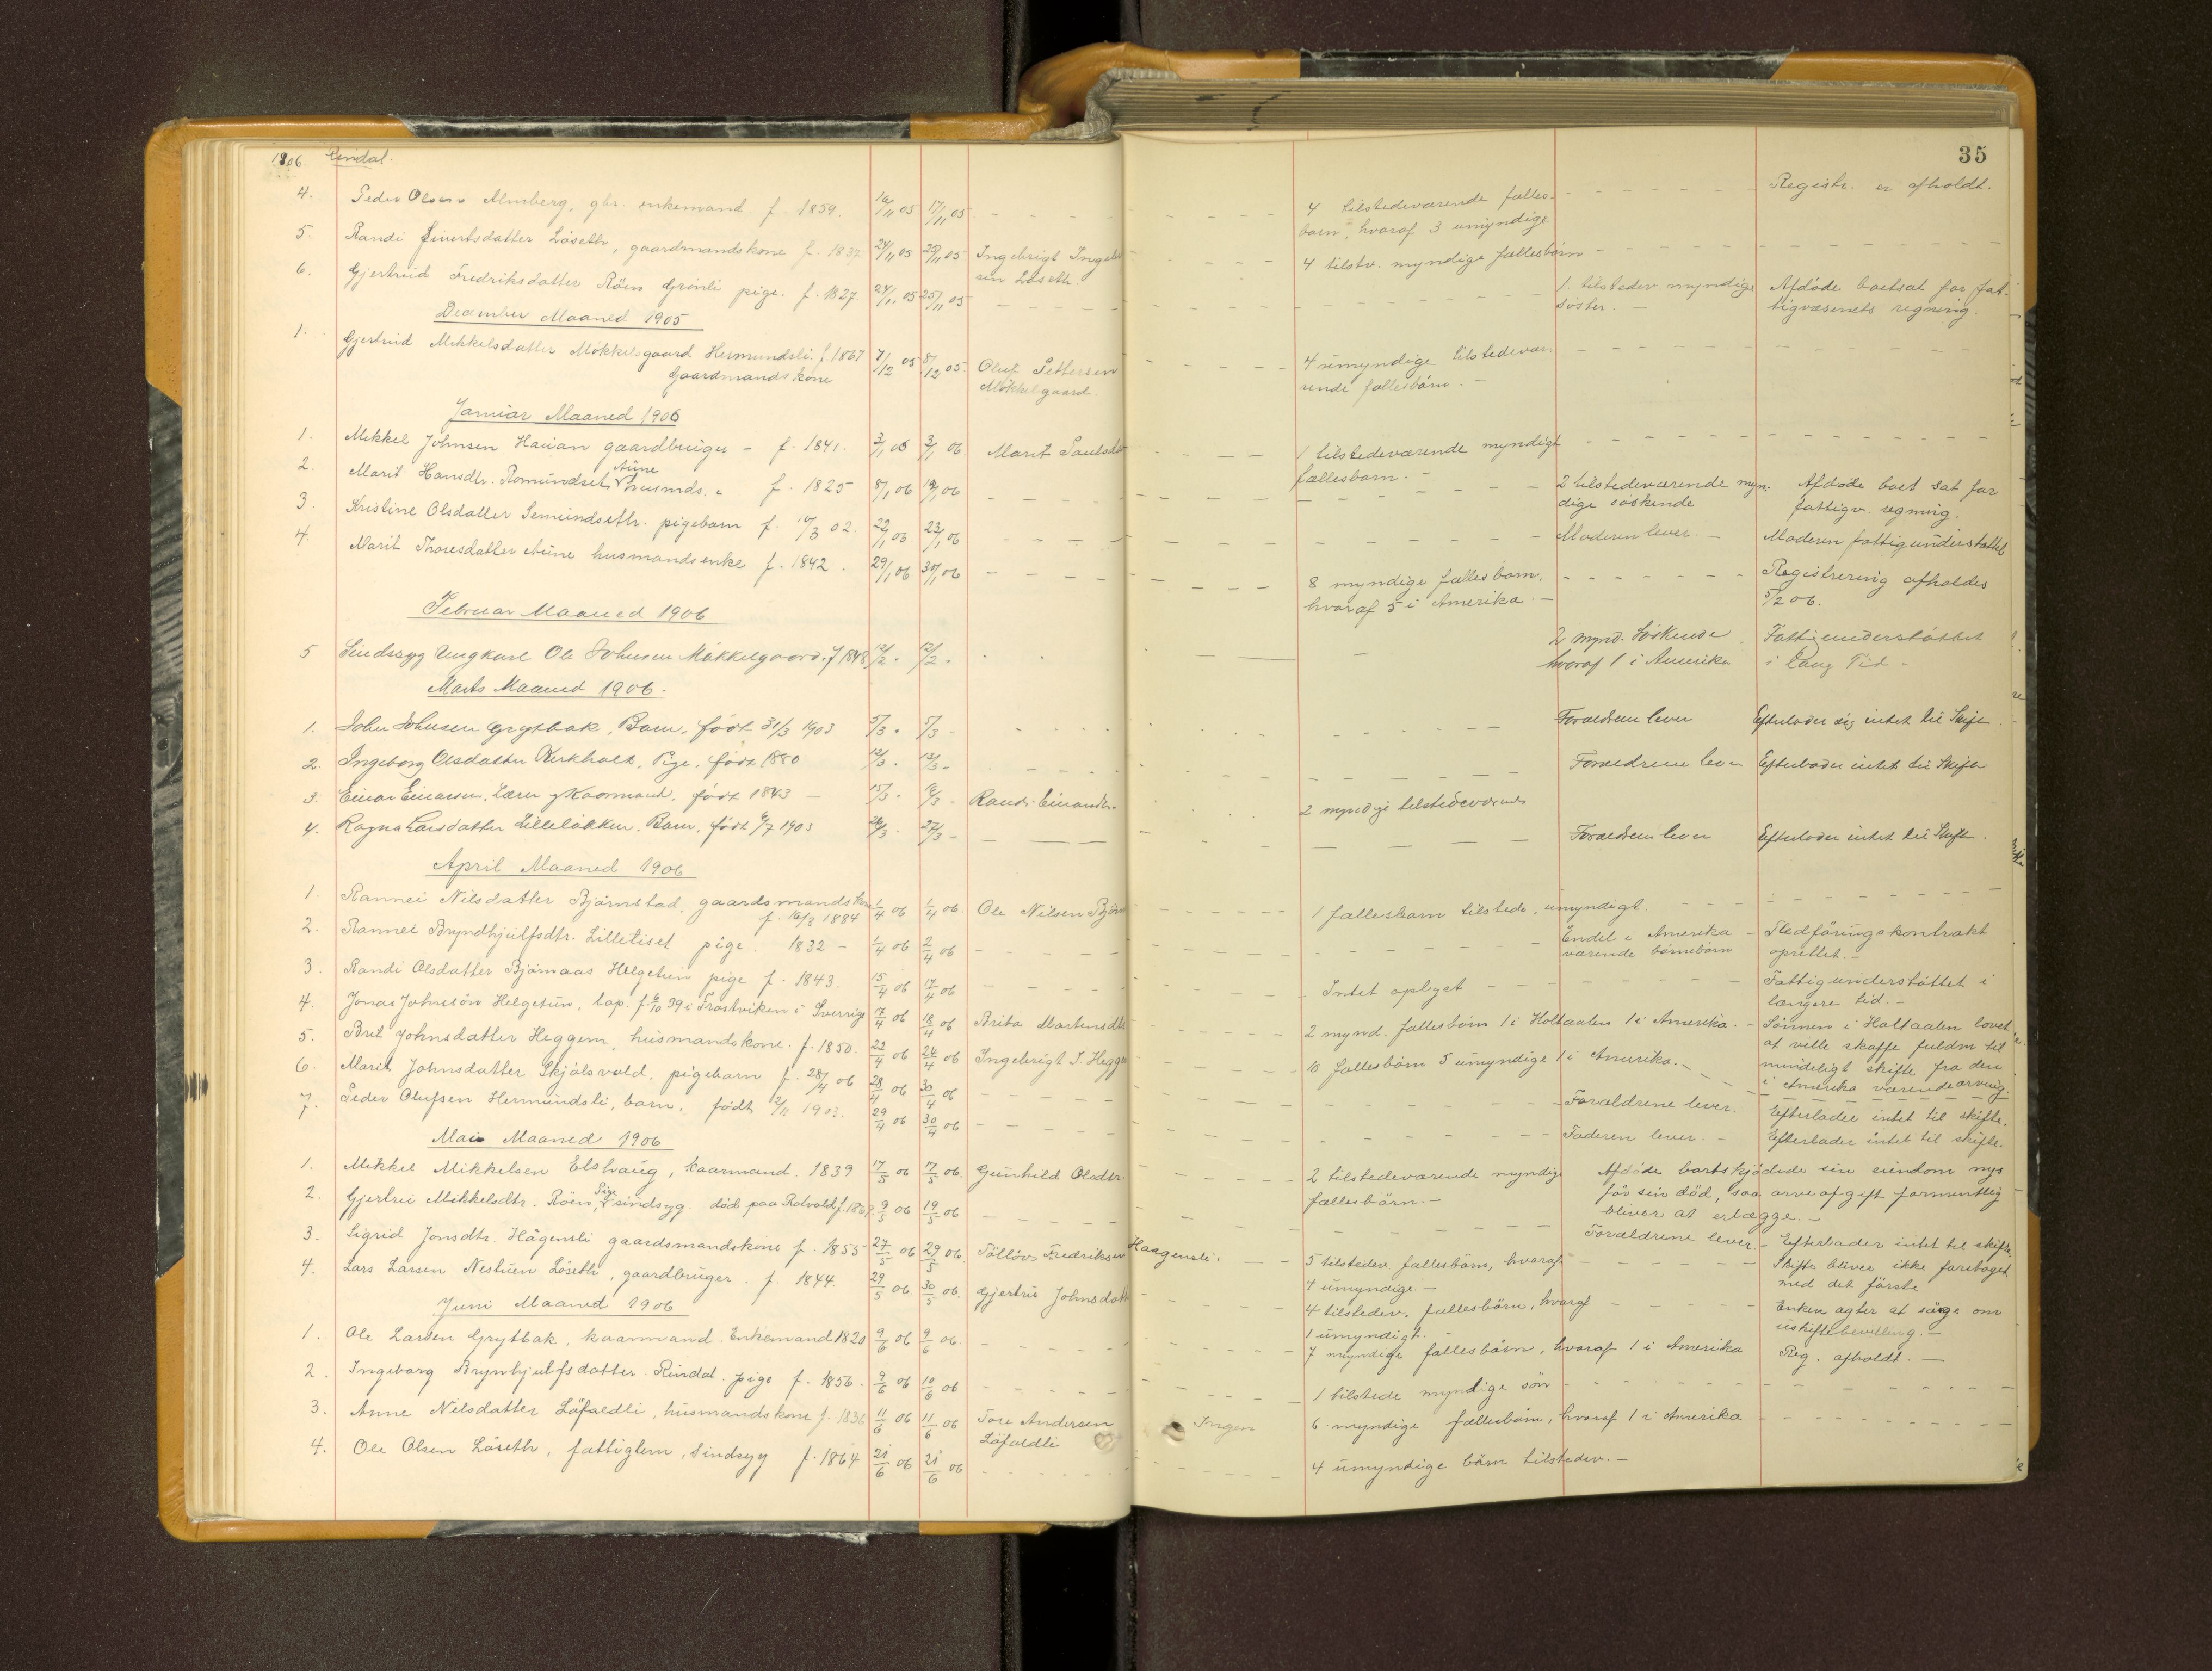 1906. Rindal.
35
4. Peder Olsen Almberg, gbr. enkemand f. 1859. 16/11 05 17/11 05 4 tilstedeværende fælles- Registr. er afholdt.
børn, hvoraf 3 umyndige
5. Randi Sivertsdatter Löseth, gaardmandskone f. 1832 24/11 05 25/11 05 Ingebrigt Ingebr 4 tilstv. myndige fællesbörn
sen Löseth.
6. Gjertrud Fredriksdatter Röen Grönli pige. f. 1827 24/11 05 25/11 05 1 tilstedev myndige Afdöde bortsat for fat-
söster. tigvæsenets regning.
December Maaned 1905
1. Gjertrud Mikkelsdatter Mökkelgaard Hermundsli. f. 1867 7/12 05 8/12 05 Oluf Pettersen 4 umyndige tilstedevæ-
Gaardmandskone Mökkelgaard rende fællesbörn.
Januar Maaned 1906
1. Mikkel Johnsen Hauan gaardbruger - f. 1841. 3/1 06 3/1 06. Marit Paulsdat 1 tilstedeværende myndigt
fællesbarn.
2. Marit Hansdtr. Romundset Aune husmds. f. 1825 8/1 06 12/1 06 2 tilstedeværende myn- Afdöde bort sat for
dige söskende fattigv. regning.
3. Kristine Olsdatter Semundseth. pigebarn f. 10/3 02. 22/1 06 23/1 06 Moderen lever. Moderen fattigunderstöttet
4. Marit Thoresdatter Aune husmandsenke f. 1842. 29/1 06 30/1 06 8 myndige fællesbörn, Registrering afholdes
hvoraf 5 i Amerika. 5/2 06.
Februar Maaned 1906
5 Sindssyg Ungkarl Ole Johnsen Mökkelgaard. f 1848 12/2. 12/2. 2 mynd. Söskende Fattigunderstöttet
hvoraf 1 i Amerika i lang Tid -
Marts Maaned 1906.
1. John Johnsen Grytbak, Barn, født 31/3 1903 5/3. 5/3 - Foraeldren lever Efterlader sig intet til Skifte.
2. Ingeborg Olsdatter Kirkholt, Pige, født 1880 12/3. 13/3 - Foraeldrene lever Efterlader intet til Skifte
3. Einar Einarsen, Kaarmand, født 1843 - 15/3. 16/3 - Randi Einarsdtr. 2 myndige tilstedeværende
4. Ragna Larsdatter Lillelökken. Barn, født 6/7 1903 26/3. 27/3 - Foraeldren lever Efterlader intet til Skifte.
April Maaned 1906
1. Rannei Nilsdatter Bjørnstad, gaardsmandskone 1/4 06 1/4 06. Ole Nilsen Bjørn 1 fællesbarn tilstede, umyndigt.
f. 16/3 1884
2. Rannei Bryndhjulfsdtr. Lilletiset pige. 1832 - 1/4 06 2/4 06 Endel i Amerika Fledföringskontrakt
værende börnebörn oprettet.
3. Randi Olsdatter Bjørnaas Helgetun pige f. 1843. 15/4 06 17/4 06 Intet oplyst Fattigunderstöttet i
længere tid. -
4. Jonas Johnsön Helgetun, lap. f. 6/10 39 i Frostviken i Sverrige 17/4 06 18/4 06 Brita Martensdtr 2 mynd. fællesbörn 1 i Holtaalen 1 i Amerika. Sönnen i Holtaalen lovet
at ville skaffe fuldm til
mindeligt skifte fra den
i Amerika værende arving.
5. Brit Johnsdatter Heggem, husmandskone. f. 1850. 22/4 06 24/4 06 Ingebrigt I. Hegge 10 fællesbörn 5 umyndige 1 i Amerika.
6. Marit Johnsdatter Skjölsvold, pigebarn f. 28/4 06 28/4 06 30/4 06 Forældrene lever. Efterlader intet til skifte.
7. Peder Olufsen Hermundsli, barn. født 2/11 1903. 29/4 06 30/4 06 Faderen lever. Efterlader intet til skifte.
Mai Maaned 1906
1. Mikkel Mikkelsen Elshaug, kaarmand. 1839 17/5 06 17/5 06. Gunhild Olsdtr. 2 tilstedeværende myndige Afdöde bortskjödede sin eiendom nys
fællesbörn. för sin död, saa arveafgift formentlig
bliver at erlægge.
2. Gjertru Mikkelsdtr. Röen, Pige sindsyg. död paa Rotvold f. 1869. 9/5 06 19/5 06 Forældrene lever. Efterlader intet til skifte.
3. Sigrid Jonsdtr. Hågensli gaardsmandskone f. 1855 27/5 06 29/5 06. Tölløv Fredriksen Haagensli. 5 tilstedev. fællesbörn, hvoraf Skifte bliver ikke foretaget
4 umyndige. med det förste
4. Lars Larsen Nestuen Löseth, gaardbruger. f. 1844. 29/5 06. 30/5 06. Gjertru Johnsdatt 4 tilstedev. fællesbörn, hvoraf Enken agter at söge om
1 umyndigt. uskiftebevilling.
Juni Maaned 1906
1. Ole Larsen Grytbak, kaarmand. Enkemand 1820 9/6 06 9/6 06. 7 myndige fællesbörn, hvoraf 1 i Amerika Reg. afholdt.
2. Ingeborg Brynhjulfsdatter. Rindal. pige f. 1856. 9/6 06 10/6 06 1 tilstede myndige sön
3. Anne Nilsdatter Löfaldli, husmandskone f. 1836 11/6 06 11/6 06 Tore Andersen Ingen 6 myndige fællesbörn, hvoraf 1 i Amerika
Löfaldli
4. Ole Olsen Löseth, fattiglem, sindsyg f. 1864 21/6 06 21/6 06 4 umyndige börn tilstedev.